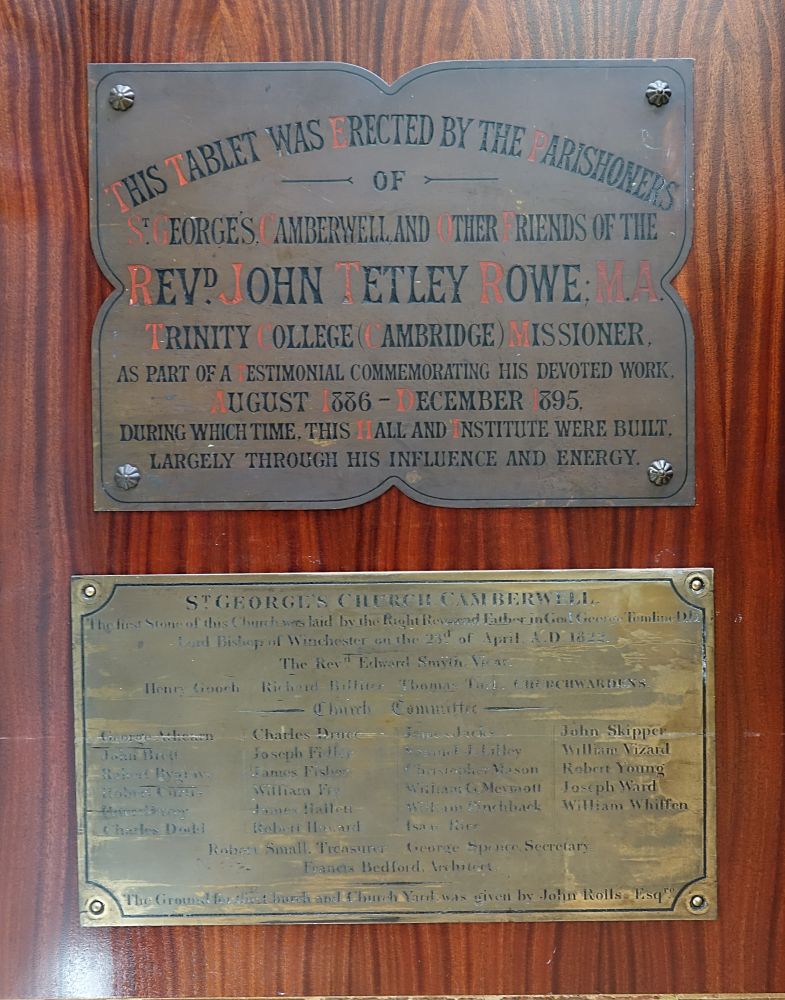 THIS TABLET WAS ERECTED BY THE PARISHONERS
OF
ST GEORGE'S, CAMBERWELL, AND OTHER FRIENDS OF THE
REVD. JOHN TETLEY ROWE; M.A.
TRINITY COLLEGE (CAMBRIDGE) MISSIONER,
AS PART OF A TESTIMONIAL COMMEMORATING HIS DEVOTED WORK,
AUGUST 1886 – DECEMBER 1895,
DURING WHICH TIME, THIS HALL AND INSTITUTE WERE BUILT,
LARGELY THROUGH HIS INFLUENCE AND ENERGY.
ST GEORGE'S CHURCH CAMBERWELL.
The first Stone of this Church was laid by the Right Reverend Father in God George Tomline D.D.
Lord Bishop of Winchester on the 23d of April, A.D 1822.
The Revd Edward Smyth, Vicar.
Henry Gooch Richard Billiter Thomas CHURCHWARDENS
Church Committee
George Athearn Charles Druce James Jacks John Skipper
John Brett Joseph Fidler Samuel J. Lilley William Vizard
Robert James Fisher Christopher Mason Robert Young
Robert Curtis William Fry William G. Meymott Joseph Ward
James Hallett William Pinchback William Whiffen
Charles Dodd Robert Havard Isaac Rice
Robert Small, Treasurer George Spence, Secretary
Francis Bedford, Architect.
The Ground for this Church and Church Yard was given by John Rolls Esqre